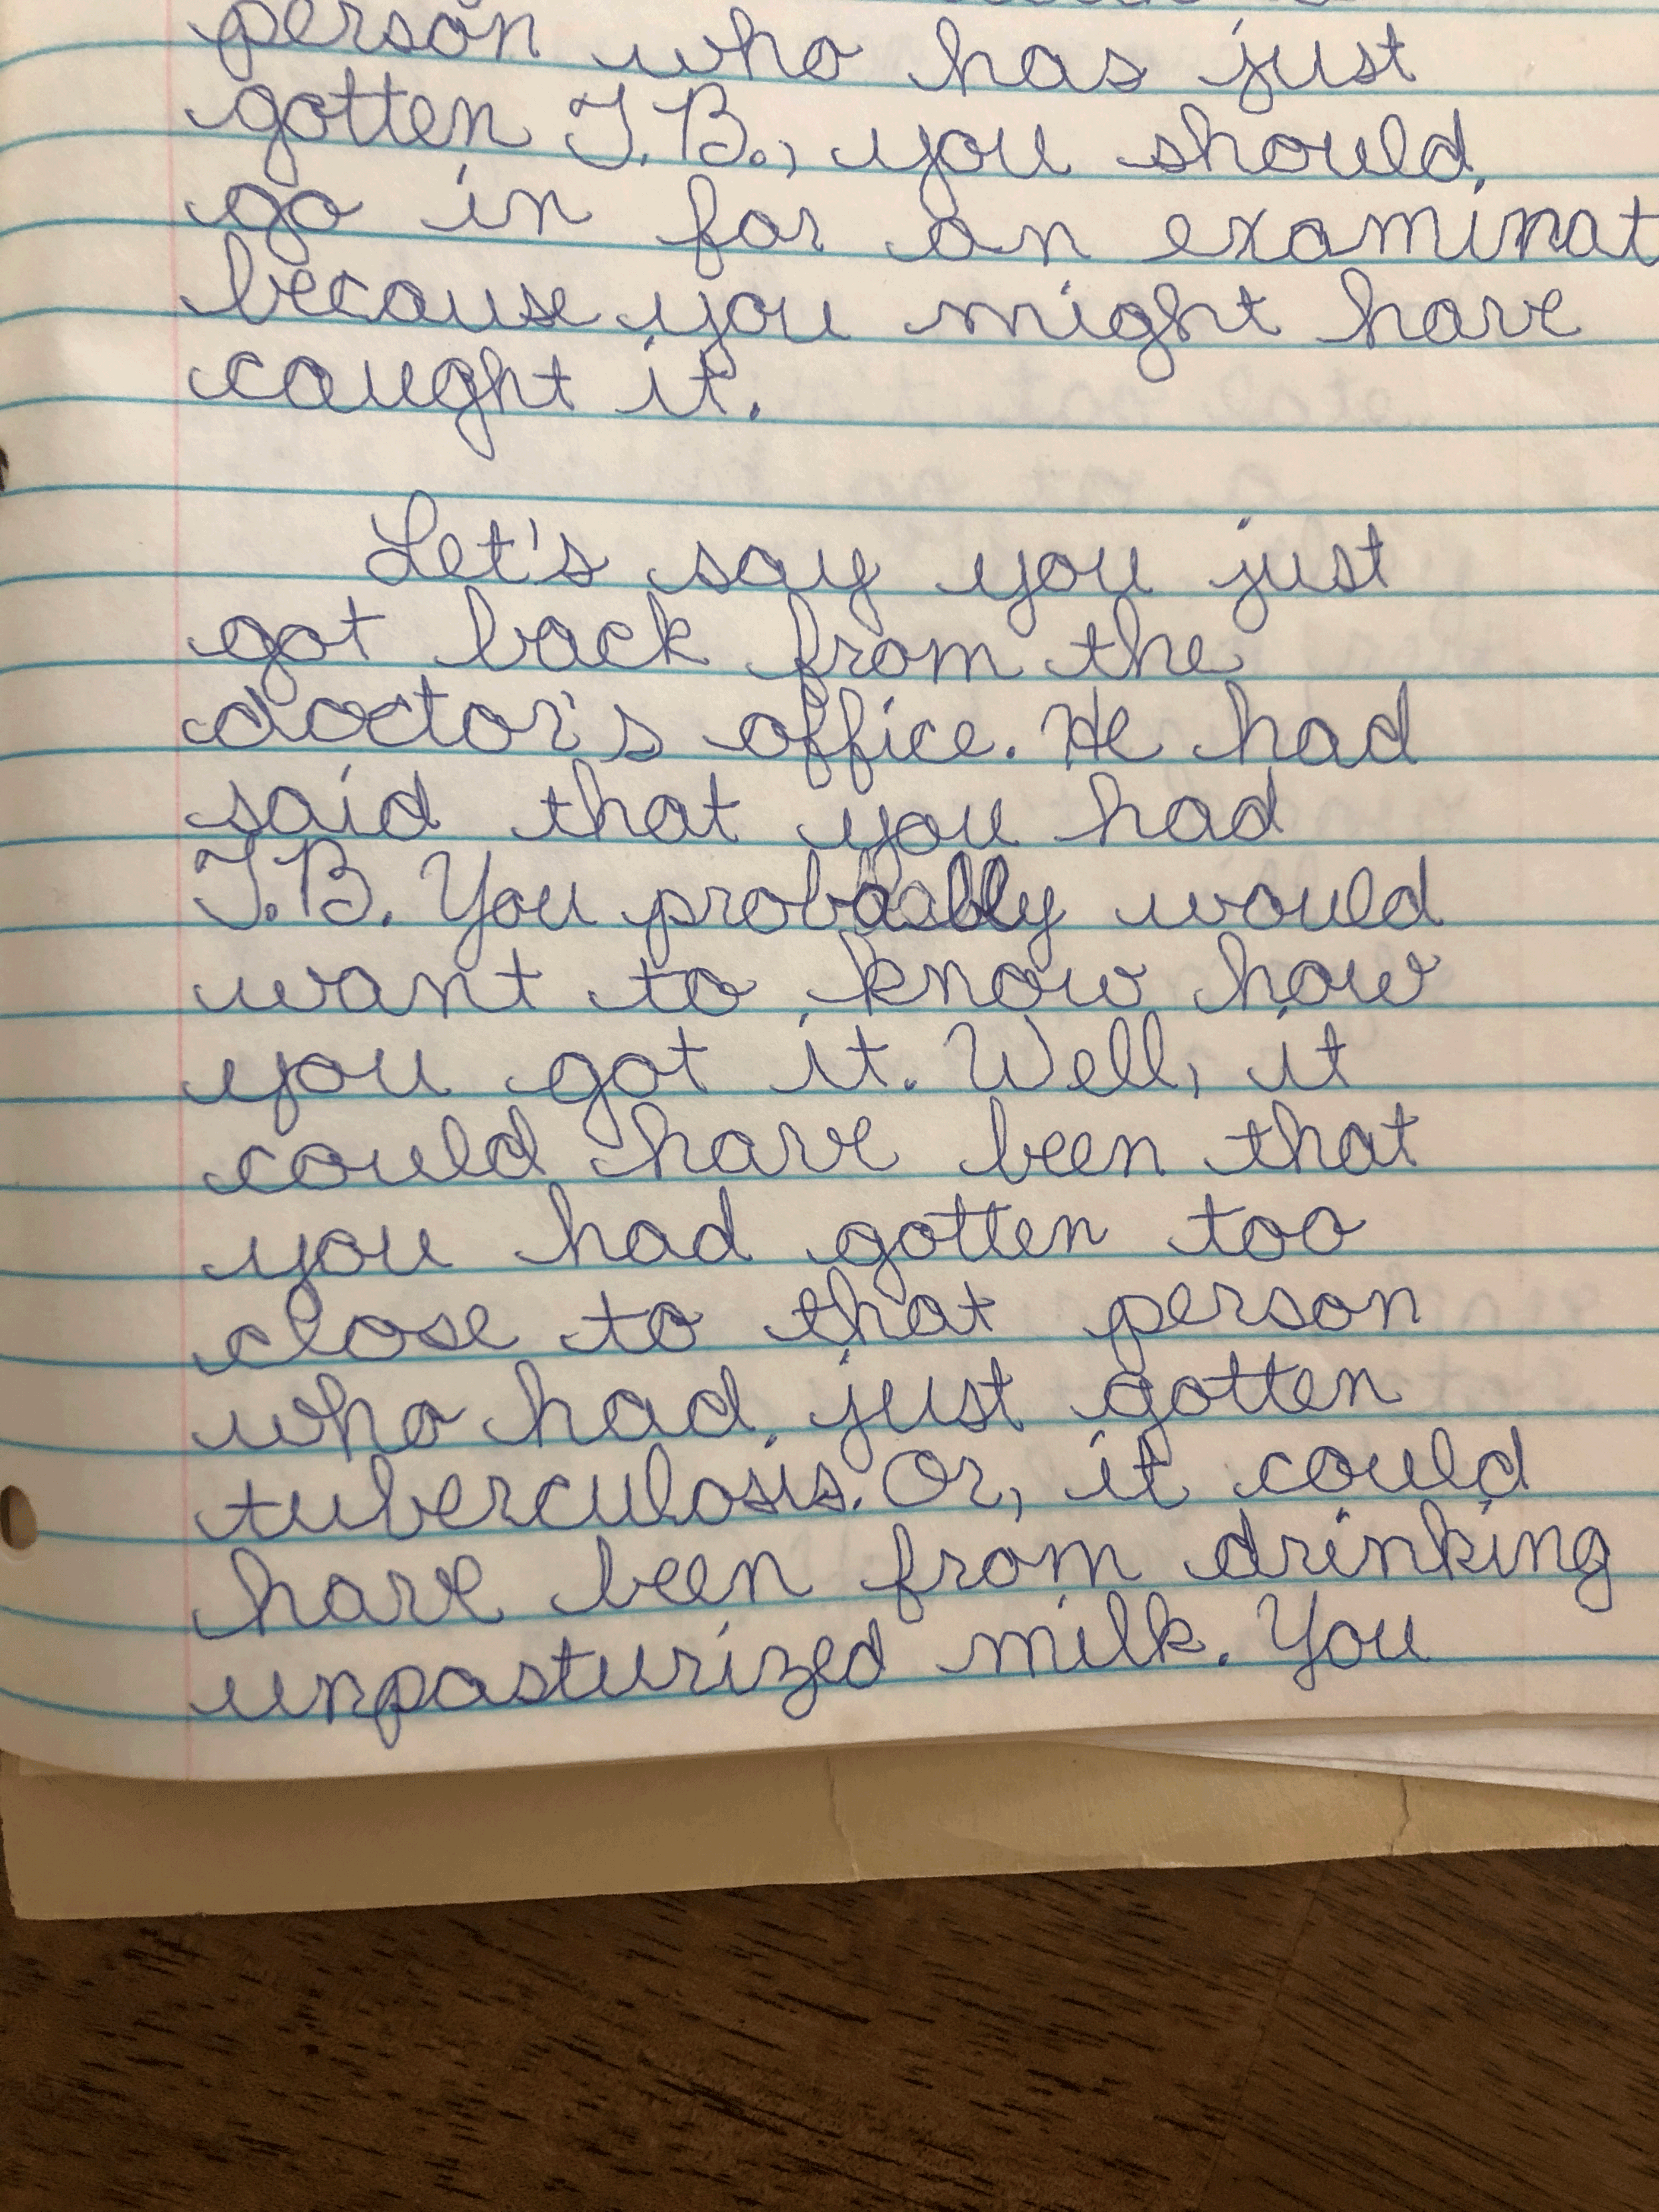 person who has just
gotten T.B., you should
go in for an examinat
because you might have
caught it.
Let's say you just
got back from the
doctor's office. He had
said that you had
T.B. You probably would
want to know how
you got it. Well, it
could have been that
you had gotten too
close to that person
who had just gotten
tuberculosis. Or, it could
have been from drinking
unpasturized milk. You